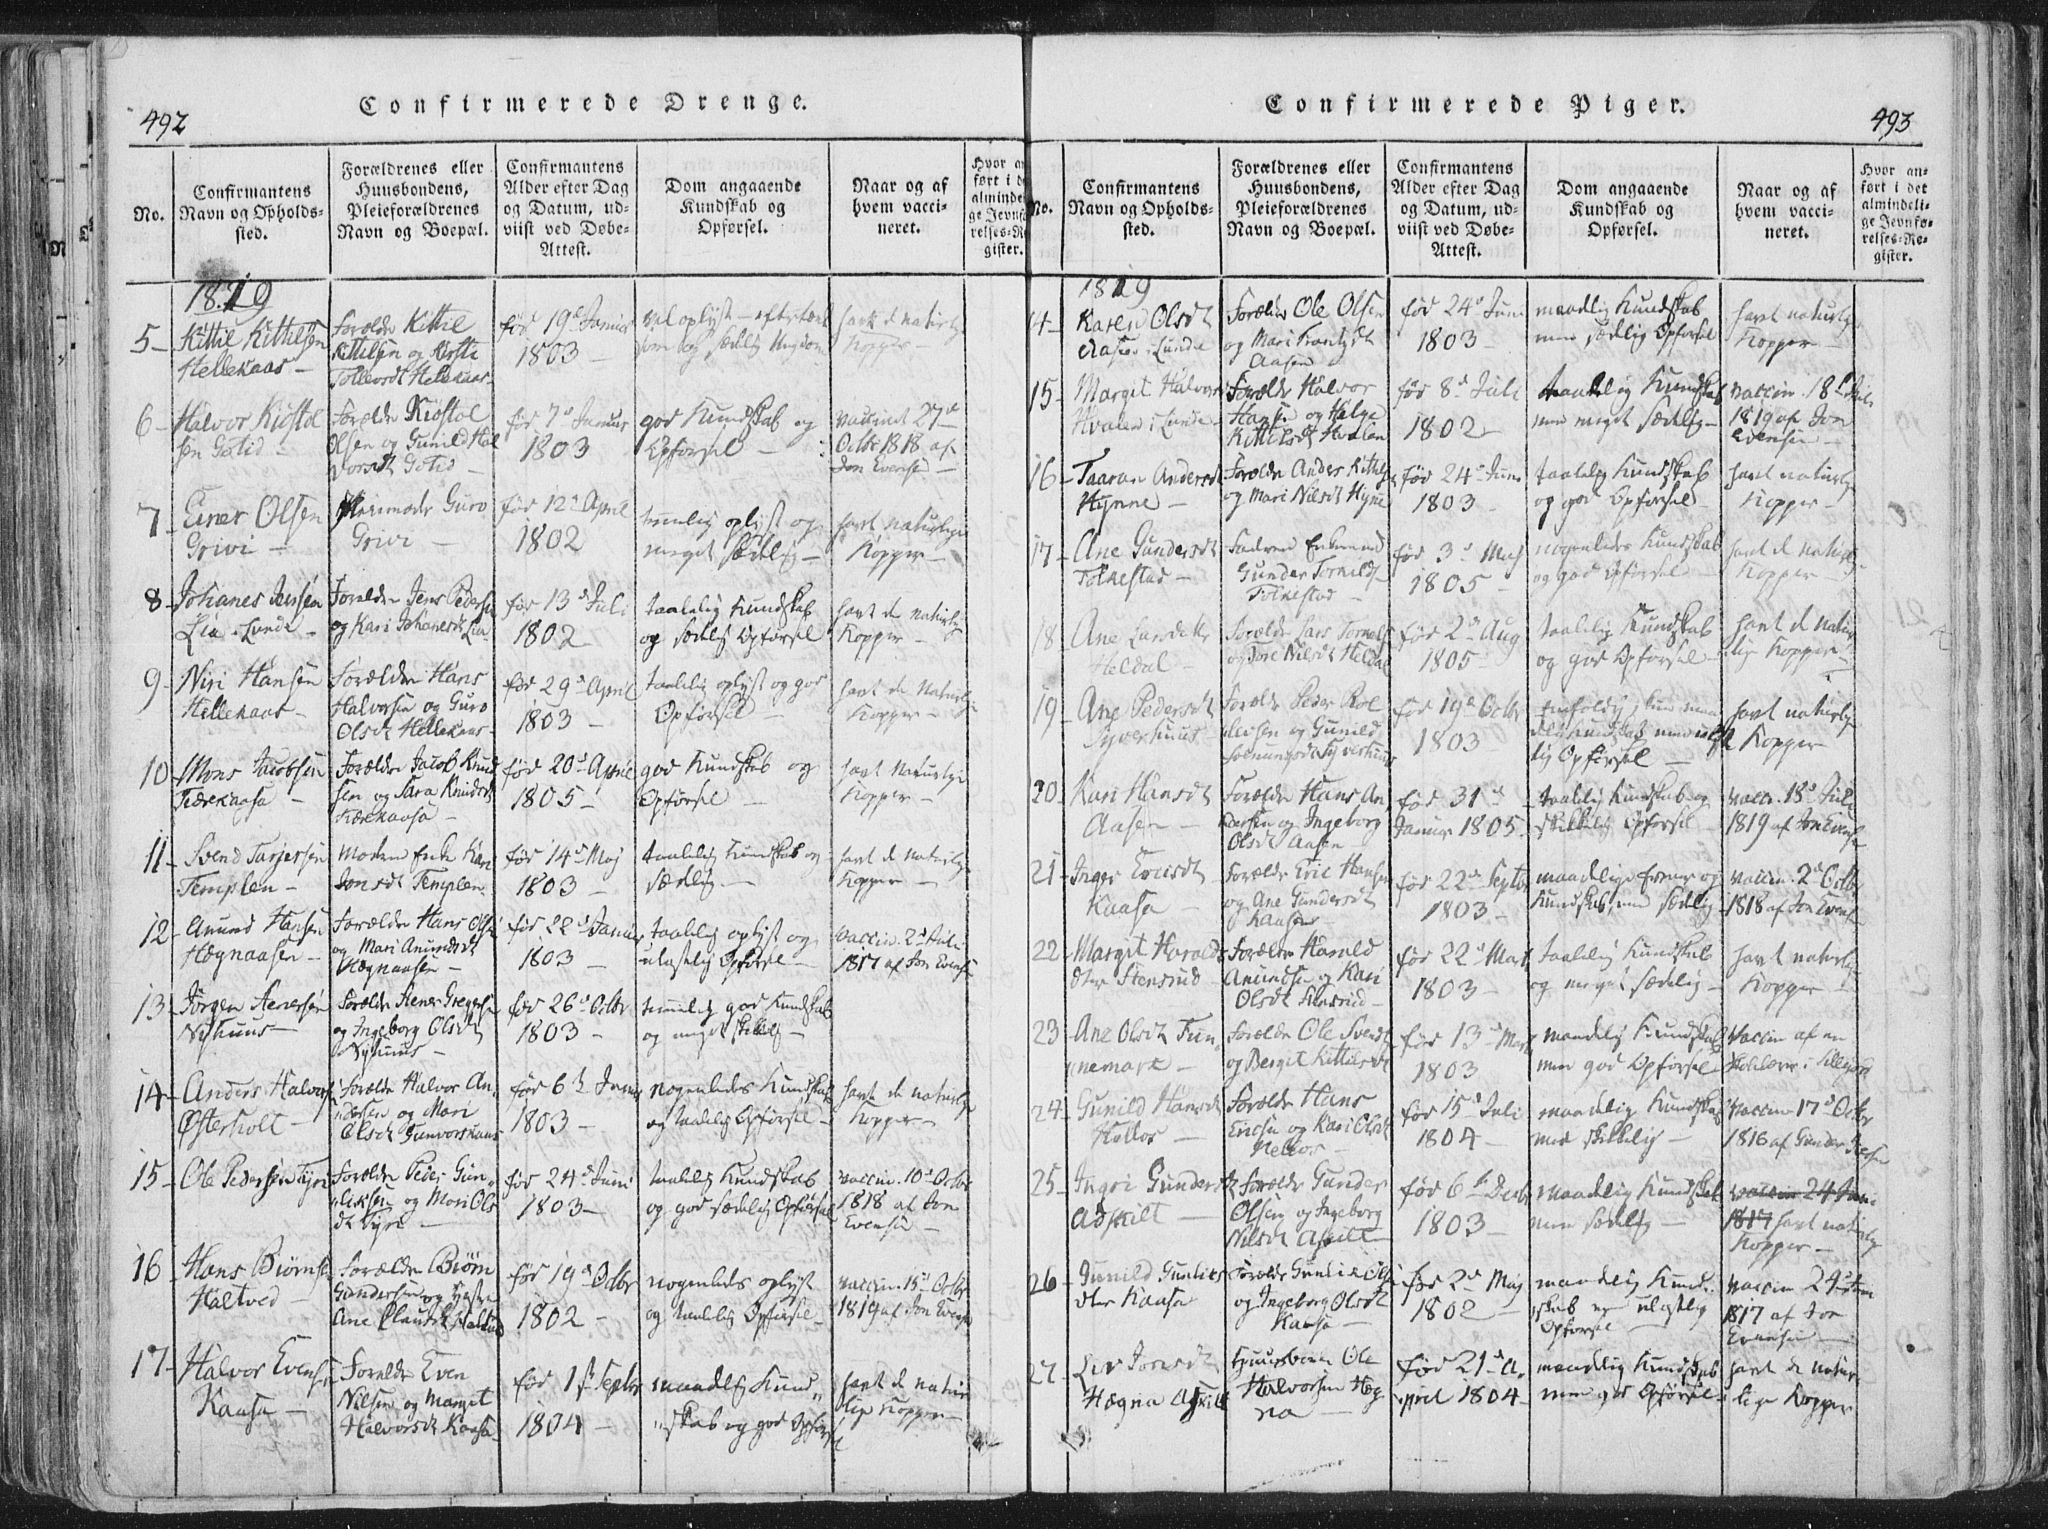 492
Confirmerede Drenge.
No.
Confirmantens
Navn og Opholds-
sted.
Forældrenes eller
Huusbondens,
Pleieforældrenes
Navn og Boepæl.
Confirmantens
Alder efter Dag
og Datum, ud-
viist ved Døbe-
Attest.
Dom angaaende
Kundskab og
Opførsel.
Naar og af
hvem vacci-
neret.
Hvor an
ført i de
almindeli
ge Jevnfø
relses-Re
gister.
1819
5
Kittil Kittilsen
Hellekaas
Forældr Kittil
Kittilsen og Kirsti
Tollevsdt Hellekaas
før 19d Januar
1803
vel oplyst
havt d naturlige
Kopper
6
Halvor Kiøstol
sen Gotid
Forældr Kiøstol
Olsen og Gunild Hal
vorsdt Gotid
før 7d Januar
1803
god Kundskab og
Opførsel
vaccinet 27d
Octbr 1818 af
Jon Evensen
7
Einer Olsen
Grivi
Guro
Grivi
før 12d April
1802
temmelig oplyst og
meget sædelig
havt naturlige
Kopper
8
Johanes Jensen
Lia i Lunde
Forældre Jens Pedersen
og Kari Johanesdt Lia
før 13d Juli
1802
taalelig Kundskab
og sædelig Opførsel
havt de naturlig
Kopper
9
Niri Hansen
Hellekaas
Forældre Hans
Halvorsen og Guro
Olsdt Hellekaas
før 29d April
1803
taalelig oplyst og god
Opførsel
havt de Naturlige
Kopper
10
Mons Jacobsen
Tiærekaasa
Forældre Jacob Knud
sen og Sara Knudsdt
Tiærekaasa
før 20d April
1805
god Kundskab og
Opførsel
havt Naturlige
Kopper
11
Svend Tarjersen
Templen
Moderen Enke Kari
Jonsdt Templen
før 14d Maj
1803
taalelig Kundskab og
Sædelig
havt de naturlige
Kopper
12
Anund Hansen
Hægnaasen
Forældre Hans Olsen
og Mari Anundsdt
Hægnaasen
før 22d Januar
1803
taalelig oplyst og
ulastelig Opførsel
vaccin. 2d Juli
1817 af Jon Evensen
13
Jørgen Stenersen
Nyhuus
Forældre Stener Gregersen
og Ingeborg Olsdt
Nyhuus
før 26d Octbr
1803
temmelig god Kundskab
og meget skikkelig
14
Anders Halvorsen
Østerholt
Forældre Halvor An-
dersen og Mari
Olsdt Gunvorskaas
før 6te Januar
1803
nogenledes Kundskab
og taalelig Opførsel
havt de naturlige
Kopper
15
Ole Pedersen Tyri
Forældre Peder Gun-
lieksen og Mari Ols
dt Tyri
før 24d Juni
1803
taalelig Kundskab
og god sædelig Opførsel
vaccin. 10d Octbr
1818 af Jon
Evensen
16
Hans Biørnsen
Haltved
Forældre Biørn
Gundersen og
Ane Haltved
før 19d Octbr
1802
nogenleds oplyst
og taalelig Opførsel
vaccin. 15d Octbr
1819 af Jon Evensen
17
Halvor Evensen
Kaasa
Forældre Even
Nilsen og Margit
Halvorsdt Kaasa
før 1ste Septbr
1804
maadelig Kund-
skab og god Opførsel
havt de natur
lige Kopper
493
Confirmerede Piger.
No.
Confirmantens
Navn og Opholds-
sted.
Forældrenes eller
Huusbondens,
Pleieforældrenes
Navn og Boepæl.
Confirmantens
Alder efter Dag
og Datum, ud-
viist ved Døbe-
Attest.
Dom angaaende
Kundskab og
Opførsel.
Naar og af
hvem vacci-
neret.
Hvor an-
ført i det
almindeli-
ge Jevnfø-
relses-Re-
gister.
1819
14
Karen Olsdt
Aasen i Lunde
Forældre Ole Olsen
og Mari
Aasen
før 24d Juni
1803
maadelig Kundskab
men sædelig Opførsel
havt naturlige
Kopper
15
Margit Halvorsdt
Hvalen i Lunde
Forældr Halvor
Hansen og Helge
Kittilsdt Hvalen
før 8d Juli
1802
taalelig Kundskab
men meget sædelig
vaccin. 18d Juli
1819 af Jon
Evensen
16
Taaran Andersdt
Hynne
Forældre Anders Kittilsen
og Mari Nilsdt Hynne
før 24d Juni
1803
taalelig Kundskab
og god Opførsel
havt naturlige
Kopper
17
Ane Gundersdt
Folkestad
Faderen Enkemand
Gunder Torkilds
Folkestad
før 3d Maj
1805
nogenledes Kundskab
og god Opførsel
havt d naturlige
Kopper
18
Ane Larsdatter
Heldal
Forældre Lars
og Tore Nilsdt Heldal
før 2d Aug
1805
taalelig Kundskab
og god Opførsel
havt d natur
lig Kopper
19
Ane Pedersdt
Syverhuus
Forældre Peder Roe
levsen og Gunild
Solnungsdt Syverhuus
før 19d Octbr
1803
Eenfoldig, kun maa
delig Kundskab men
lig Opførsel
havt naturlige
Kopper
20
Kari Hansdt
Aasen
Forældre Hans An
dersen og Ingeborg
Olsdt Aasen
før 31d
Januar 1805
taalelig Kundskab og
skikkelig Opførsel
vaccin. 18d Juli
1819 af Jon Evensen
21
Inger Ericsdt
Kaasa
Forældre Eric Hansen
og Ane Gundersdt
Kaasen
før 22d Septbr
1803
maadelige Evner og
Kundskab, men sædelig
vaccin. 2d Octbr
1818 af Jon Evensen
22
Margit Haralds
dtter Stensrud
Forældre Harald
Anundsen og Kari
Olsdt Stensrud
før 22d Mart
1803
taalelig Kundskab
og meget sædelig
havt naturlige
Kopper
23
Ane Olsdt Tun-
nemark
Forældre Ole Svends
og Bergit Kittilsdt
før 13d Mart
1803
maadelig Kundskab
men god Opførsel
vaccin af en
i Sillejord
24
Gunild Hansdt
Forældre Hans
Ericsen og Kari Olsdt
før 15d Juli
1804
maadelig Kundskab
men skikkelig
vaccin 17d Octbr
1816 af Gunder
25
Ingri Gundersdt
Askilt
Forældre Gunder
Olsen og Ingeborg
Nilsdt Askilt
før 6te Decbr
1803
maadelig Kundskab
men sædelig
vaccin 24 Juni
1817 havt naturlige
Kopper
26
Gunild Gunlieks
dtter Kaasa
Forældre Gunliek Olsen
og Ingeborg Olsdt
Kaasa
før 2d Maj
1802
maadelig Kund-
skab men ulastelig
Opførsel
vaccin 24d Juni
1817 af Jon
Evensen
27
Liv Jonsdt
Hægna Askilt
Huusbonde Ole
Halvorsen Hæg-
na
før 21d A-
pril 1804
maadelig Kundskab
men god Opførsel
havt de natur
lige Kopper